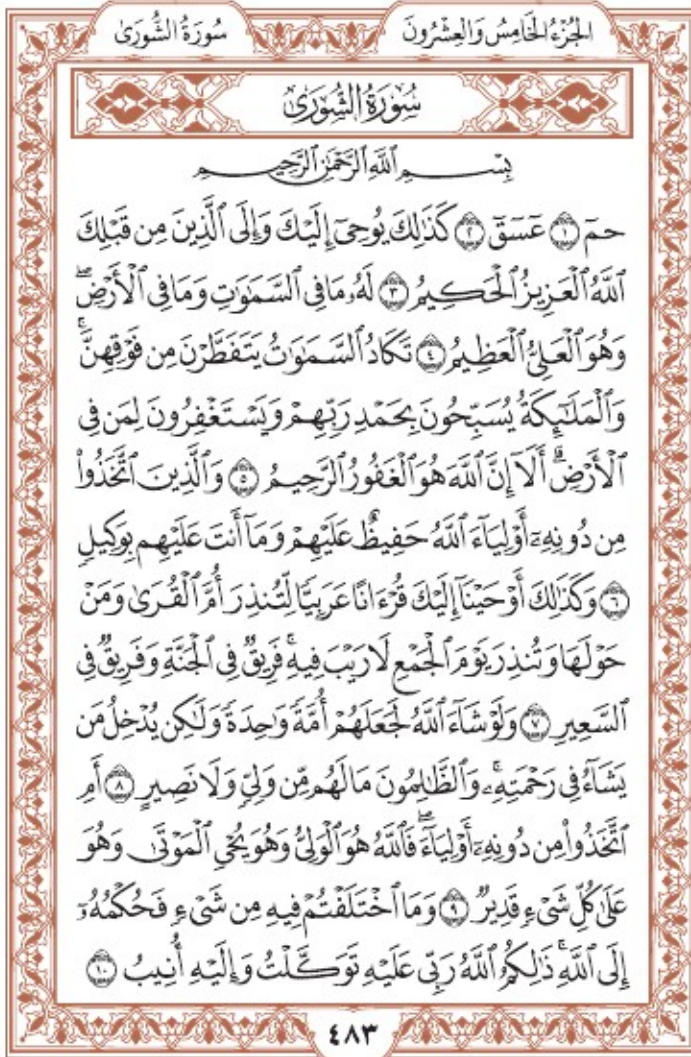 الجُزْءُ الخَامِسُ وَالعِشْرُونَ سُورَةُ الشُّورَىٰ
سُورَةُ الشُّورَىٰ
بِسْمِ ٱللَّهِ ٱلرَّحْمَٰنِ ٱلرَّحِيمِ
حمٓ ١ عٓسٓقٓ ٢ كَذَٰلِكَ يُوحِىٓ إِلَيْكَ وَإِلَى ٱلَّذِينَ مِن قَبْلِكَ
ٱللَّهُ ٱلْعَزِيزُ ٱلْحَكِيمُ ٣ لَهُۥ مَا فِى ٱلسَّمَٰوَٰتِ وَمَا فِى ٱلْأَرْضِۖ
وَهُوَ ٱلْعَلِىُّ ٱلْعَظِيمُ ٤ تَكَادُ ٱلسَّمَٰوَٰتُ يَتَفَطَّرْنَ مِن فَوْقِهِنَّۚ
وَٱلْمَلَٰٓئِكَةُ يُسَبِّحُونَ بِحَمْدِ رَبِّهِمْ وَيَسْتَغْفِرُونَ لِمَن فِى
ٱلْأَرْضِۗ أَلَآ إِنَّ ٱللَّهَ هُوَ ٱلْغَفُورُ ٱلرَّحِيمُ ٥ وَٱلَّذِينَ ٱتَّخَذُوا۟
مِن دُونِهِۦٓ أَوْلِيَآءَ ٱللَّهُ حَفِيظٌ عَلَيْهِمْ وَمَآ أَنتَ عَلَيْهِم بِوَكِيلٍ
٦ وَكَذَٰلِكَ أَوْحَيْنَآ إِلَيْكَ قُرْءَانًا عَرَبِيًّا لِّتُنذِرَ أُمَّ ٱلْقُرَىٰ وَمَنْ
حَوْلَهَا وَتُنذِرَ يَوْمَ ٱلْجَمْعِ لَا رَيْبَ فِيهِۚ فَرِيقٌ فِى ٱلْجَنَّةِ وَفَرِيقٌ فِى
ٱلسَّعِيرِ ٧ وَلَوْ شَآءَ ٱللَّهُ لَجَعَلَهُمْ أُمَّةً وَٰحِدَةً وَلَٰكِن يُدْخِلُ مَن
يَشَآءُ فِى رَحْمَتِهِۦۚ وَٱلظَّٰلِمُونَ مَا لَهُم مِّن وَلِىٍّ وَلَا نَصِيرٍ ٨ أَمِ
ٱتَّخَذُوا۟ مِن دُونِهِۦٓ أَوْلِيَآءَۖ فَٱللَّهُ هُوَ ٱلْوَلِىُّ وَهُوَ يُحْىِ ٱلْمَوْتَىٰ وَهُوَ
عَلَىٰ كُلِّ شَىْءٍ قَدِيرٌ ٩ وَمَا ٱخْتَلَفْتُمْ فِيهِ مِن شَىْءٍ فَحُكْمُهُۥٓ
إِلَى ٱللَّهِۚ ذَٰلِكُمُ ٱللَّهُ رَبِّى عَلَيْهِ تَوَكَّلْتُ وَإِلَيْهِ أُنِيبُ ١٠
٤٨٣